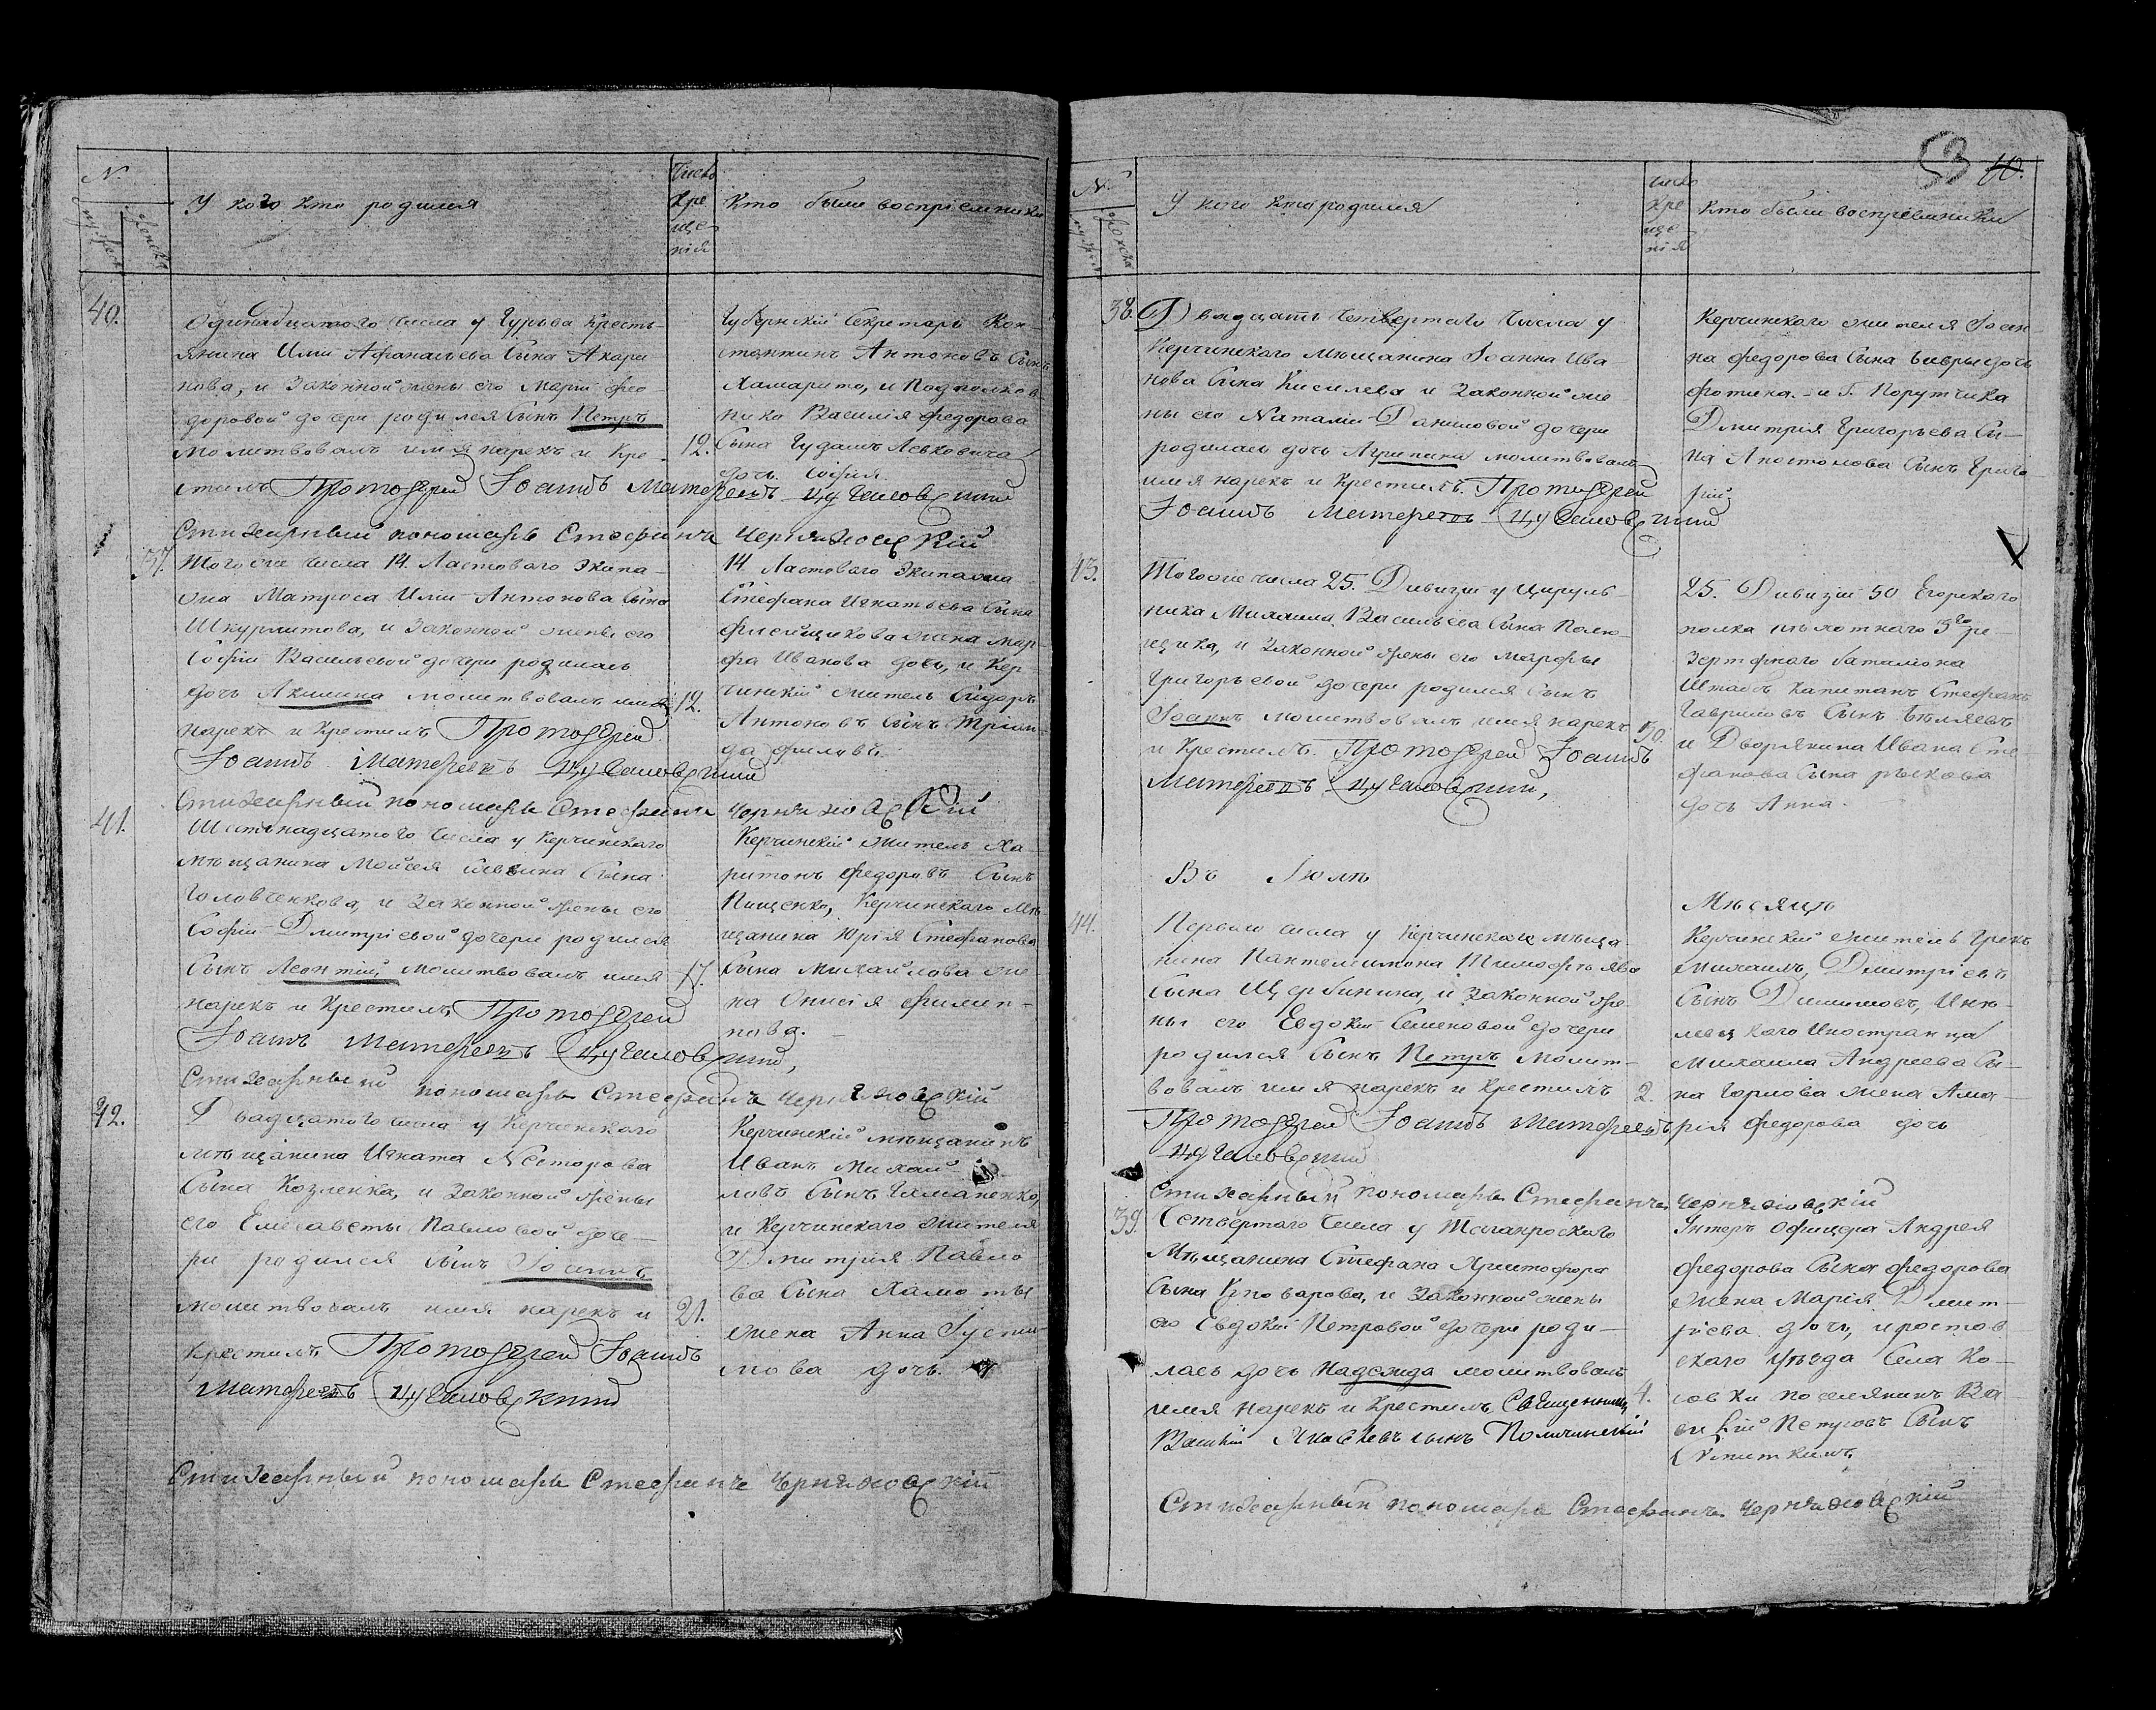 №
мужеска
женска
У кого кто родился
Число
Кре
ще
нія
Кто были воспріемники
40.
Одинадцатого числа у Гурьева Кресть-
янина Иліи Афанасьева Сына Акари
нова, и Законной жены его Маріи Фео-
доровой дочери родился Сынъ Петръ
молитвовалъ имя нарекъ и Кре-
стилъ Протоіерей Іоаннъ
12.
Губернскій Секретарь Кон
стантинъ Антоновъ Сынъ
Хамарито, и Подполков
ника Василія Федорова
Сына Гудашъ Левковича
дочь Софія
Стихарный пономарь Стефанъ Черняховскій
37.
Того же числа 14. Ластоваго Экипа-
жа Матроса Иліи Антонова Сына
Шкурлатова, и Законной жены его
Софіи Васильевой дочери родилась
дочь Акилина молитвовалъ имя
нарекъ и Крестилъ Протоіерей
Іоаннъ
12.
14 Ластоваго Экипажа
Стефана Игнатьева Сына
жена Мар
фа Иванова дочь, и Кер
чинскій житель Сидоръ
Антоновъ Сынъ Тріан-
дафиловъ.
Стихарный пономарь Стефанъ Черняховскій
41.
Шестнадцатого числа у Керчинскаго
мещанина Моисея Савина Сына
Головченкова, и Законной жены его
Софіи Дмитріевой дочери родился
Сынъ Леонтій молитвовалъ имя
нарекъ и Крестилъ Протоіерей
Іоаннъ
17.
Керчинскій житель Ха
ритонъ Федоровъ Сынъ
Пищенко, Керчинскаго Мѣ
щанина Юрія Стефанова
Сына Михайлова же-
на Онисія Филип-
пова.
Стихарный пономарь Стефанъ Черняховскій
42.
Двадцатого числа у Керченскаго
мѣщанина Игната Несторова
Сына Козленка, и Законной жены
его Елисаветы Павловой доче-
ри родился сынъ Іоаннъ
молитвовалъ имя нарекъ и
крестилъ Протоіерей Іоаннъ
21.
Керчинскій мѣщанинъ
Иванъ Михай-
ловъ Сынъ Гаманенко,
и Керчинскаго жителя
Дмитрія Павло
ва Сына Хамоты
жена Анна Іусти
нова дочь.
Стихарный пономарь Стефанъ Черняховскій
53 60.
№
У кого кто родился
Число
Кре
ще
нія
Кто были воспріемники
38.
Двадцать Четвертаго Числа у
Керчинскаго Мѣщанина Іоанна Ива-
нова Сына Киселева и Законной же-
ны его Наталіи Даниловой дочери
родилась дочь Агрипина молитвовалъ
имя нарекъ и Крестилъ. Протоіерей
Іоаннъ
Керчинскаго жителя Іоан-
на Федорова Сына дочь
Фотина. и Г. Порутчика
Дмитрія Григорьева Сы-
на Апостолова Сынъ Григо
рій
43.
Того же числа 25. Дивизіи у Цируль-
ника Михаила Васильева Сына Полю-
щика, и Законной жены его Марфы
Григорьевой дочери родился Сынъ
Іоаннъ молитвовалъ имя нарекъ
и Крестилъ. Протоіерей Іоаннъ
30.
25. Дивизіи 50 Егорскаго
полка пѣхотнаго 3го ре-
зертфнаго баталіона
Штабсъ Капитанъ Стефанъ
Гавриловъ Сынъ Бѣляевъ
и Дворянина Ивана Сте-
фанова Сына Рыкова
дочь Анна.
Въ Іюлѣ
Мѣсяцѣ
44.
Перваго числа у Керчинскаго мѣща-
нина Пантелеимона Тимофѣева
Сына Щербинина, и Законной же-
ны его Евдокіи Семеновой дочери
родился Сынъ Петръ молит-
вовалъ имя нарекъ и крестилъ
Протоіерей Іоаннъ
2.
Керчинскій житель Грекъ
Михаилъ Дмитріевъ
Сынъ
Иностранца
Михаила Андреева Сы-
на Горлова жена Ама-
рія Федорова дочь
Стихарный пономарь Стефанъ Черняховскій
39.
Четвертаго Числа у Таганрогскаго
Мѣщанина Стефана Христофора
Сына Кповарова, и Законной жены
его Евдокіи Петровой дочери роди-
лась дочь Надежда молитвовалъ
имя нарекъ и Крестилъ Священникъ
4.
Унтеръ Офицера Андрея
Федорова Сына Федорова
жена Марія Дмит-
ріева дочь, и ростов
скаго уѣзда Села Ко-
совки поселянинъ Ва-
силій Петровъ Сынъ
Стихарный пономарь Стефанъ Черняховскій